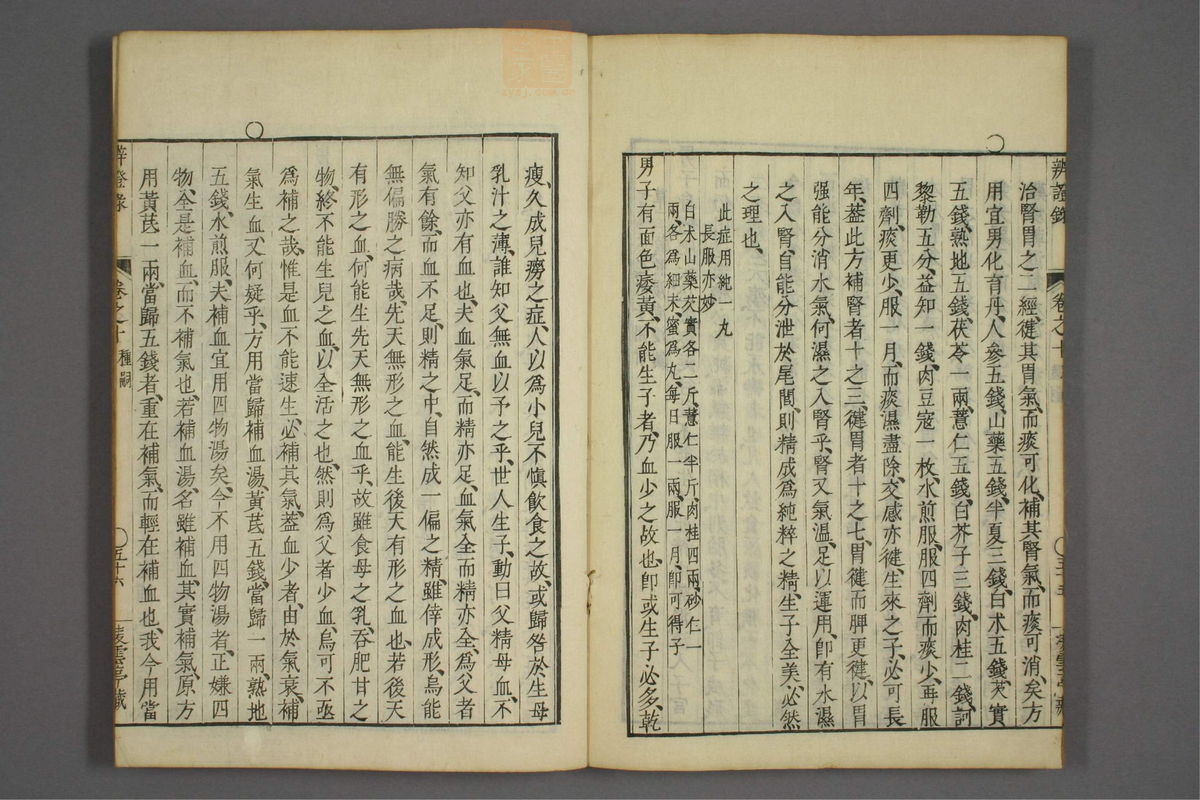 辨證錄 卷之十
治腎胃之二經、健其胃氣、而痰可化、補其腎氣、而痰可消矣、方
用宜男化育丹、人參五錢、山藥五錢、半夏三錢、白朮五錢、芡實
五錢、熟地五錢、茯苓一兩、薏仁五錢、白芥子三錢、肉桂二錢、訶
黎勒五分、益知一錢、肉豆寇一枚、水煎服、服四劑而痰少、再服
四劑、痰更少、服一月、而痰濕盡除、交感亦健、生來之子必可長
年、蓋此方補腎者十之三、健胃者十之七、胃健而脾更健、以胃
强能分消水氣、何濕之入腎乎、腎又氣溫、足以運用、卽有水濕
之入腎、自能分泄於尾閭、則精成爲純粹之精、生子全美、必然
之理也、
此症用純一丸
長服亦妙
白朮山藥芡實各二斤、薏仁半斤、肉桂四兩、砂仁一
兩、各爲細末、蜜爲丸、每日服一兩、服一月、卽可得子、
男子有面色痿黃、不能生子者、乃血少之故也、卽或生子必多、乾
瘦、久成兒癆之症、人以爲小兒不愼飲食之故、或歸咎於生母
乳汁之薄、誰知父無血以予之乎、世人生子、動曰父精母血、不
知父亦有血也、夫血氣足、而精亦足、血氣全而精亦全、爲父者
氣有餘、而血不足、則精之中、自然成一偏之精、雖倖成形、烏能
無偏勝之病哉、先天無形之血、能生後天有形之血也、若後天
有形之血、何能生先天無形之血乎、故雖食母之乳、吞肥甘之
物、終不能生兒之血、以全活之也、然則爲父者少血、烏可不亟
爲補之哉、惟是血不能速生、必補其氣、蓋血少者、由於氣衰、補
氣生血、又何疑乎、方用當歸補血湯、黃芪五錢、當歸一兩、熟地
五錢、水煎服、夫補血宜用四物湯矣、今不用四物湯者、正嫌四
物、全是補血、而不補氣也、若補血湯、名雖補血、其實補氣、原方
用黃芪一兩、當歸五錢者、重在補氣、而輕在補血也、我今用當
辨證錄 卷之十 種嗣 五十六